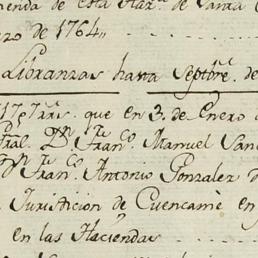 ienda de esta Haz.ª de Santa
zo de 1764,,
Libranzas hasta Septbre. de
que en 3. de Enero
Gral. Dn. Fran.co Manuel San
Dn. Fran.co Antonio Gonzalez
Jurisdicion de Cuencamè en
en las Haciendas